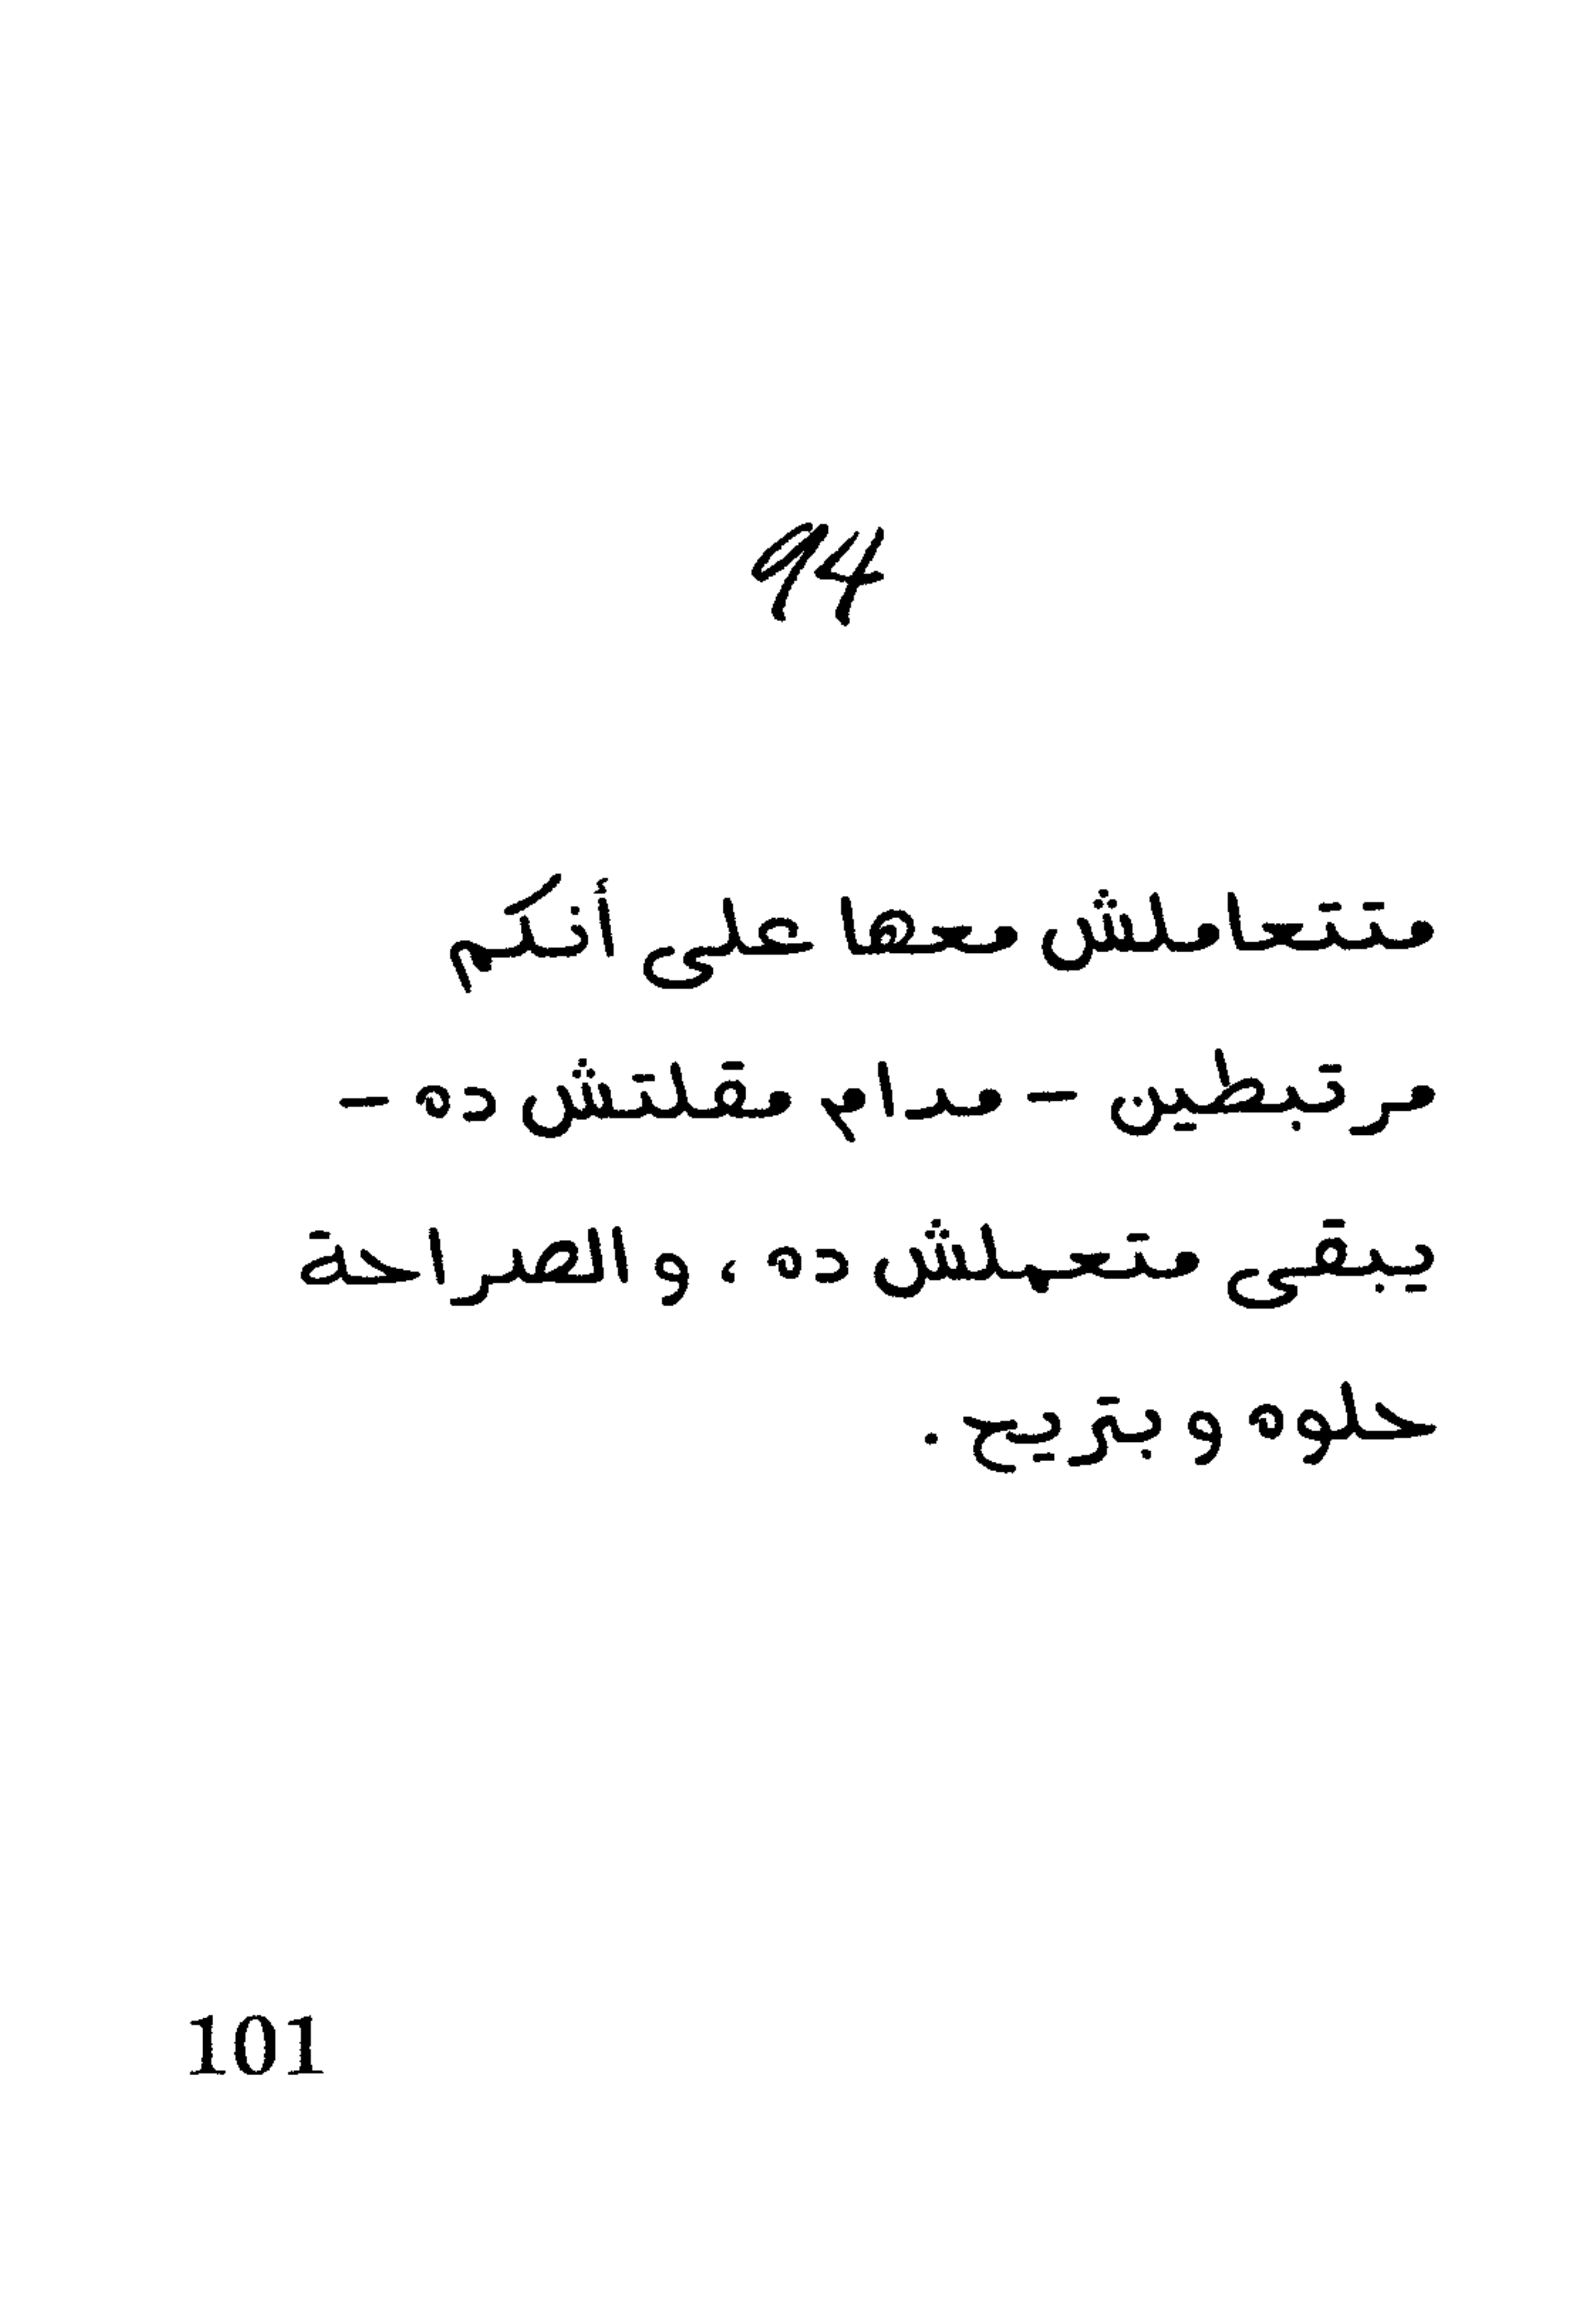 94
متتعاملش معها على أنكم
مرتبطين - مدام مقلتش ده -
يبقى متعملش ده، والصراحة
حلوه وبتريح.
101